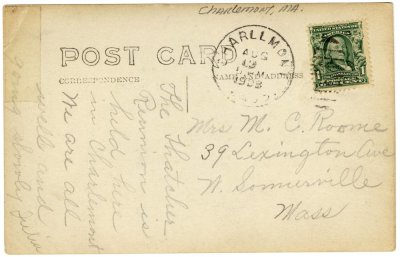 Charlemont, MA.
POST CARD
CORRESPONDENCE
NAME AND ADDRESS
CHARLLMONT
AUG
19
MASS.
The Thatcher
Reunion is
held here
in Charlemont
We are all
well and
Mrs M. C. Roome
39 Lexington Ave
W. Somerville
Mass